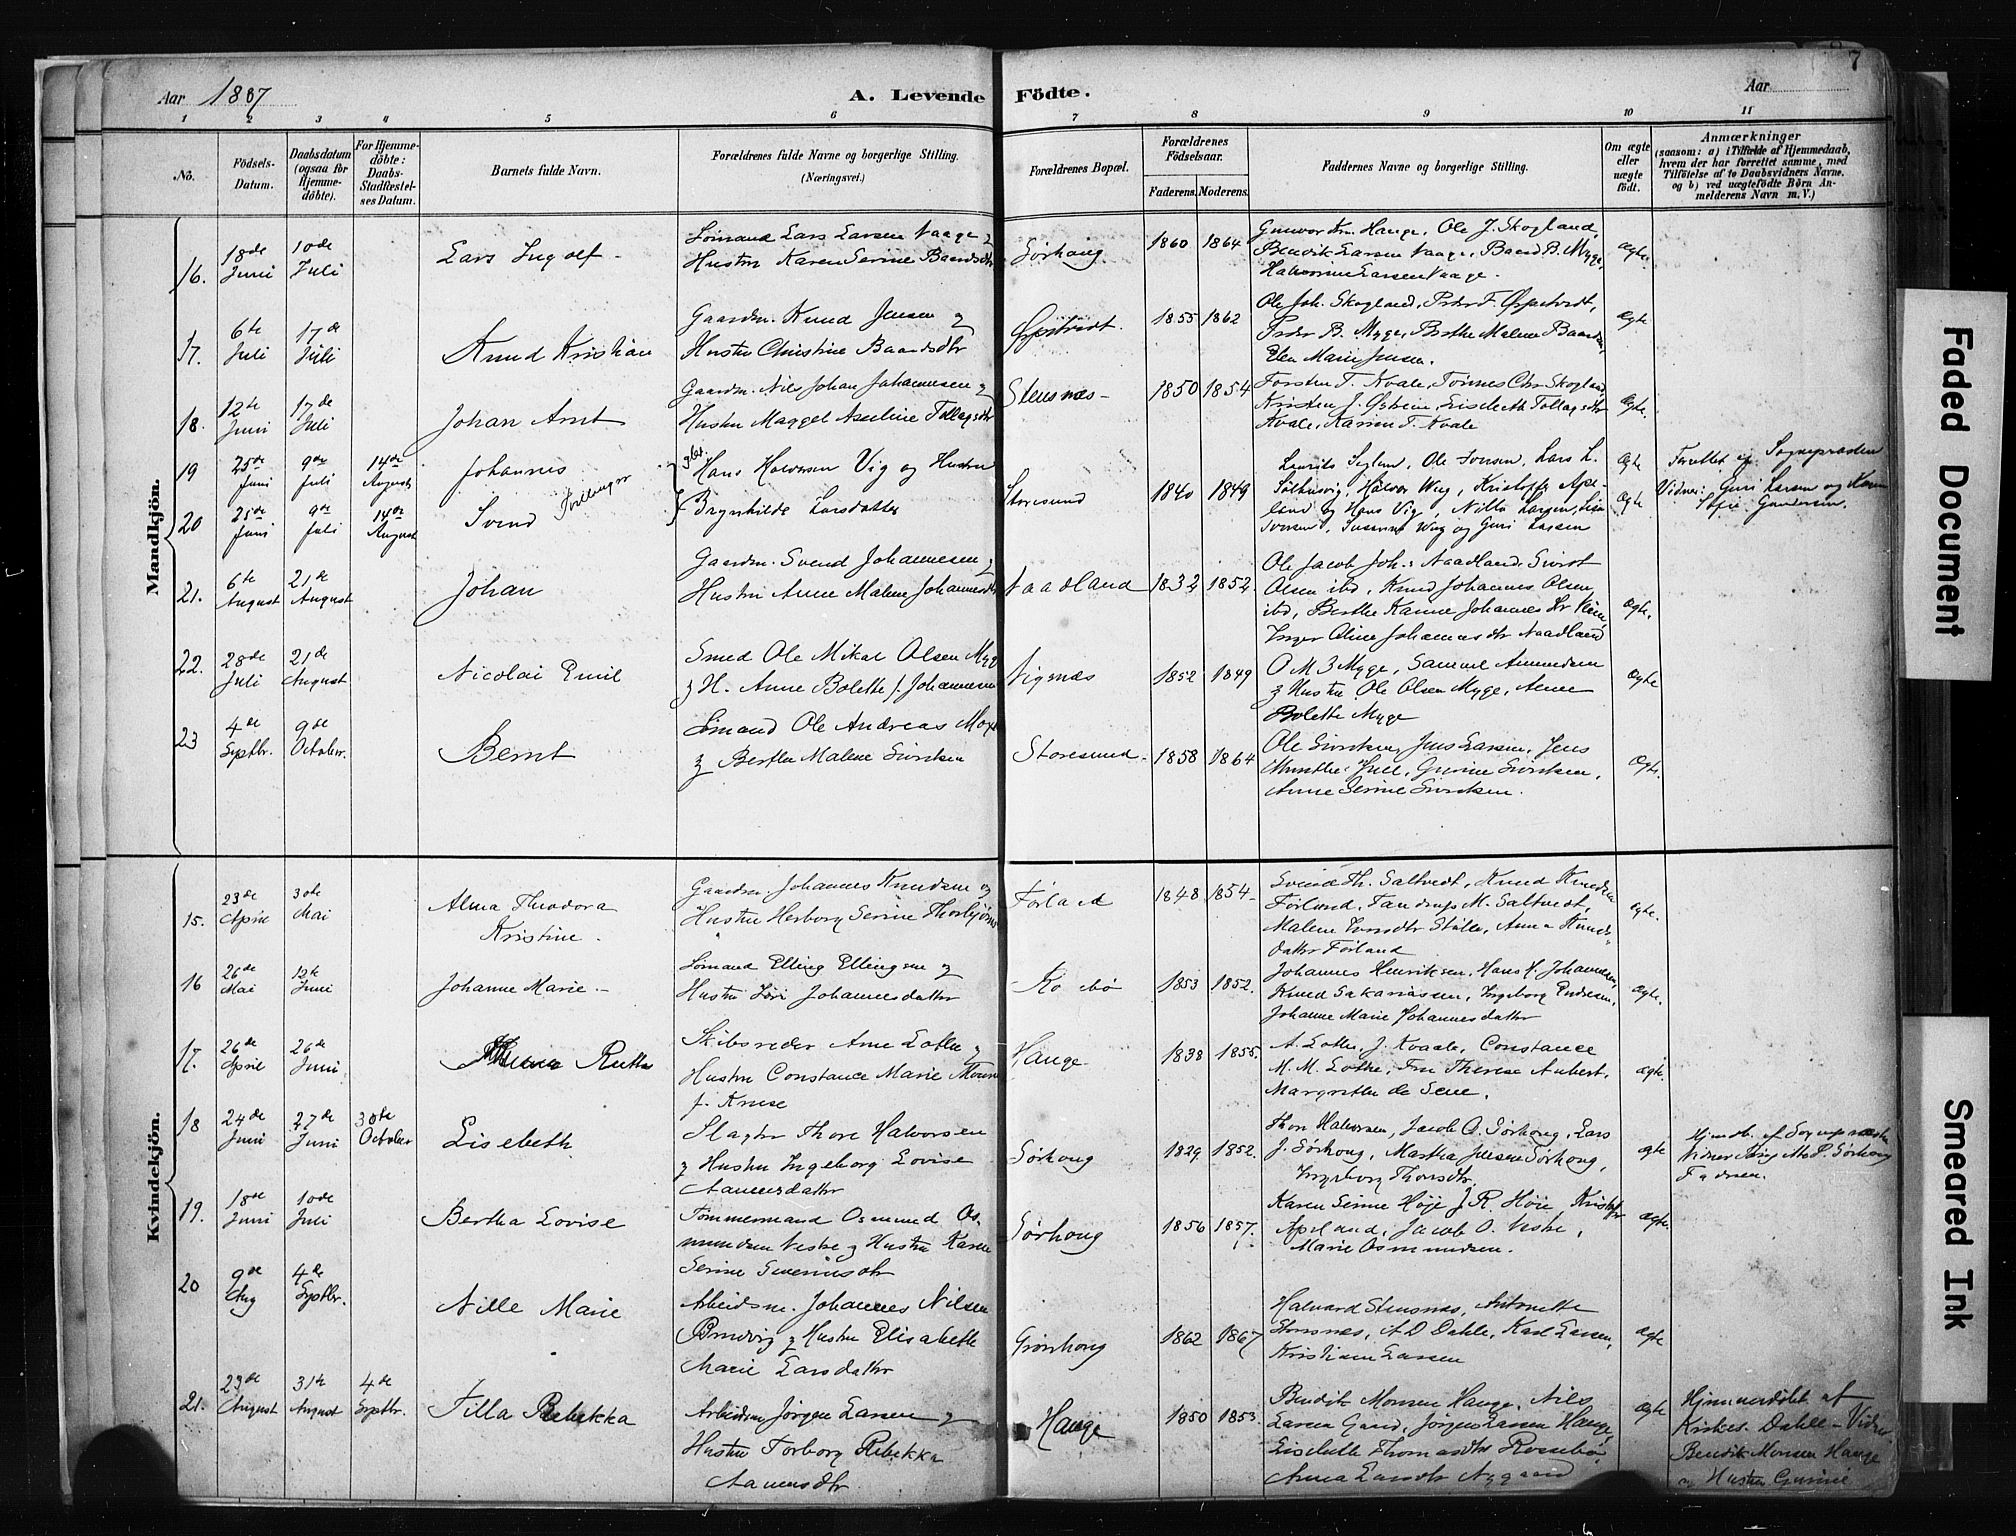 7
Aar 1887 A. Levende Födte. Aar
1 2 3 4 5 6 7 8 9 10 11
No.
Födsels-Datum.
Daabsdatum (ogsaa for Hjemmedöbte).
For Hjemmedöbte: Daabs-Stadfæstelses Datum.
Barnets fulde Navn.
Forældrenes fulde Navne og borgerlige Stilling.
(Næringsvei.)
Forældrenes Bopæl.
Forældrenes Födselsaar.
Faderens. Moderens.
Faddernes Navne og borgerlige Stilling.
Om ægte eller uægte födt.
Anmærkninger
(saasom: a) i Tilfælde af Hjemmedaab,
hvem der har forrettet samme, med
Tilföielse af to Daabsvidners Navne,
og b) ved uægtefödte Börn Anmelderens Navn m. V.)
Mandkjön.
16. 18de Juni 10de Juli Lars Ingolf
Sömand Lars Larsen Vaage &
Hustru Karen Serine Baardsdtr
Sörhoug 1860 1864
Gunvor Hauge, Ole J. Skogland,
Bendik Larsen Vaage, Baard B. Myge,
Larsen Vaage. Ægte.
17. 6te Juli 17de Juli Knud Kristian
Gaardm. Knud Jensen og
Hustru Christine Baardsdtr
1855 1862
Ole Joh. Skogland, Peder F.
Peder B. Myge, Berthe Malene
Marie Jensen. Ægte
18. 12te Juni 17de Juli Johan Arnt
Gaardm. Nils Johan Johannesen og
Hustru Maggel Aseline Tollagsdtr
Stensnæs 1850 1854
Torsten T. Kvale, Tönnes Chr Skogland
Kristen J. Lisebeth Tollagsdtr
Kvale, T. Kvale Ægte.
19 25de Juni 9de Juli 14de August Johannes
20 25de Juni 9de Juli 14de August Svend
Tvillinger
Hans Halvorsen Vig og Hustru
Brynhilde Larsdatter
Storesund 1840 1849
Laurits Ole Jonsen, Lars L.
Halvor Wig,
og Hans Vig, Nilla Larsen,
Susanna Wig og Guri Larsen
Ægte Ægte
Forrettet af Sognepresten
Vidner: Guri Larsen og
Gundersen.
21. 6te August 21de August Johan
Gaardm. Svend Johannesen &
Hustru Anne Malene Johannesdtr
Naadland 1832 1852.
Ole Jacob Joh: Naadland, Sivert
Olsen ibd, Knud Johannes Olsen
ibd, Berthe Karine Johannes dr
Inger Oline Johannesdtr Naadland Ægte.
22. 28de Juli 21de August Nicolai Emil
Smed Ole Mikal Olsen Myge
& H. Anne Bolette f. Johannesen
Vigsnæs 1852 1849
O M Myge, Samuel Amundsen
& Hustru Ole Olsen Myge, Anne
Bolette Myge Ægte
23 4de Septbr. 9de October. Bernt
Sömand Ole Andreas
& Berthe Malene Sivertsen
Storesund. 1858 1864
Ole Sivertsen, Jens Larsen, Jens
Munthe Juell, Gurine Sivertsen,
Anne Serine Sivertsen. Ægte.
Kvindekjön.
15. 23de April 30te Mai Alma Theodora
Kristine.
Gaardm. Johannes Knudsen og
Hustru Herborg Serine
Förland 1848 1854
Svend Th. Saltvedt, Knud Knudsen
Förland, M. Saltvedt,
Malene Anna Knuds-
datter Förland Ægte.
16 26de Mai 12te Juni Johanne Marie
Sömand Elling Ellingsen og
Hustru Siri Johannesdatter
1853 1852.
Johannes Henriksen, Hans H. Johannesen,
Knud Sakariassen, Ingeborg Endresen,
Johanne Marie Johannesdatter Ægte.
17. 26de April 26de Juni Ruth
Skibsreder Arne Lothe &
Hustru Constance Marie
f. Kruse
Hauge 1838 1855.
A. Lothe, J. Kvale, Constance
M. M. Lothe, Fru Therese Aubert,
Margrethe de Seue. ægte.
18 24de Juni 27de Juni 30te October Lisebeth
Slagter Thore Halvorsen
& Hustru Ingeborg Lovise
Aanensdatter
Sörhoug 1829 1852.
Thore Halvorsen, Jacob O. Sörhoug, Lars
J. Sörhoug, Martha Jensen Sörhoug,
Ingeborg Thorsdtr. ægte
Hjemdöbt af Sognepresten
Vidner P. Sörhoug
Fadren.
19. 18de Juni 10de Juli Bertha Lovise
Tömmermand Osmund Os-
mundsen Neske & Hustru Karen
Serine Sveriusdtr
Sörhoug 1856 1857.
Karen Serine Höje J. R. Höie, Kristofer
Apeland, Jacob O. Neske,
Marie Osmundsen. ægte.
20 9de Aug 4de Septbr. Nille Marie
Arbeidsm. Johannes Nilsen
& Hustru Elisabeth
Marie Larsdatter
Sörhoug 1862 1867
Halvard Stensnæs, Antonette
Stensnæs, A D Dahle, Karl Larsen,
Kristiane Larsen ægte
21. 23de August 31te August 4de Septbr. Tilla Rebekka
Arbeidsm Jörgen Larsen &
Hustru Torborg Rebekka
Aanensdtr
Hauge 1850 1853.
Bendik Monsen Hauge, Nils
Larsen Gaard, Jörgen Larsen Hauge,
Lisebeth Thomasdtr Rossebö
Anna Larsdtr Nygaard ægte
Hjemmedöbt af
Kirkes. Dahle – Vidner
Bendik Monsen Hauge
og Hustru Gurine
Faded Document
Smeared Ink